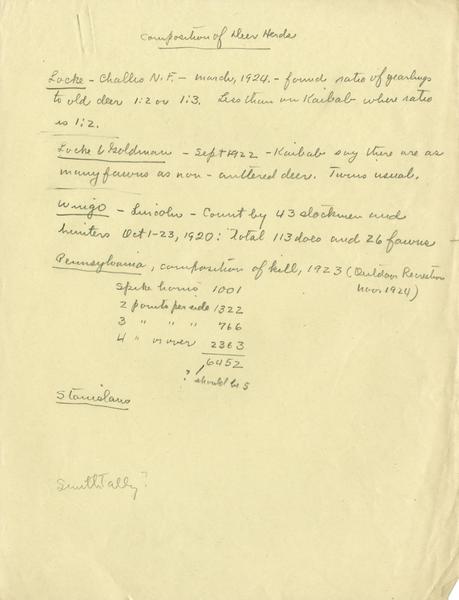 Composition of Deer Herds
Locke - Challis N.F. - March, 1924. - found ratio of yearlings
to old deer 1:2 or 1:3. Less than on Kaibab where ratio
is 1:2.
Locke & Goldman - Sept 1922 - Kaibab say there are as
many fawns as non-antlered deer. Twins usual.
Wingo - Lincoln - Count by 43 stockmen and
hunters Oct 1-23, 1920: Total 113 does and 26 fawns
Pennsylvania, composition of kill, 1923 (Outdoor Recreation
Nov. 1924)
Spike horns 1001
2 points per side 1322
3 " " " 766
4 " or over 2363
6452
? should be 5
Stanislaus
Smith Tally?